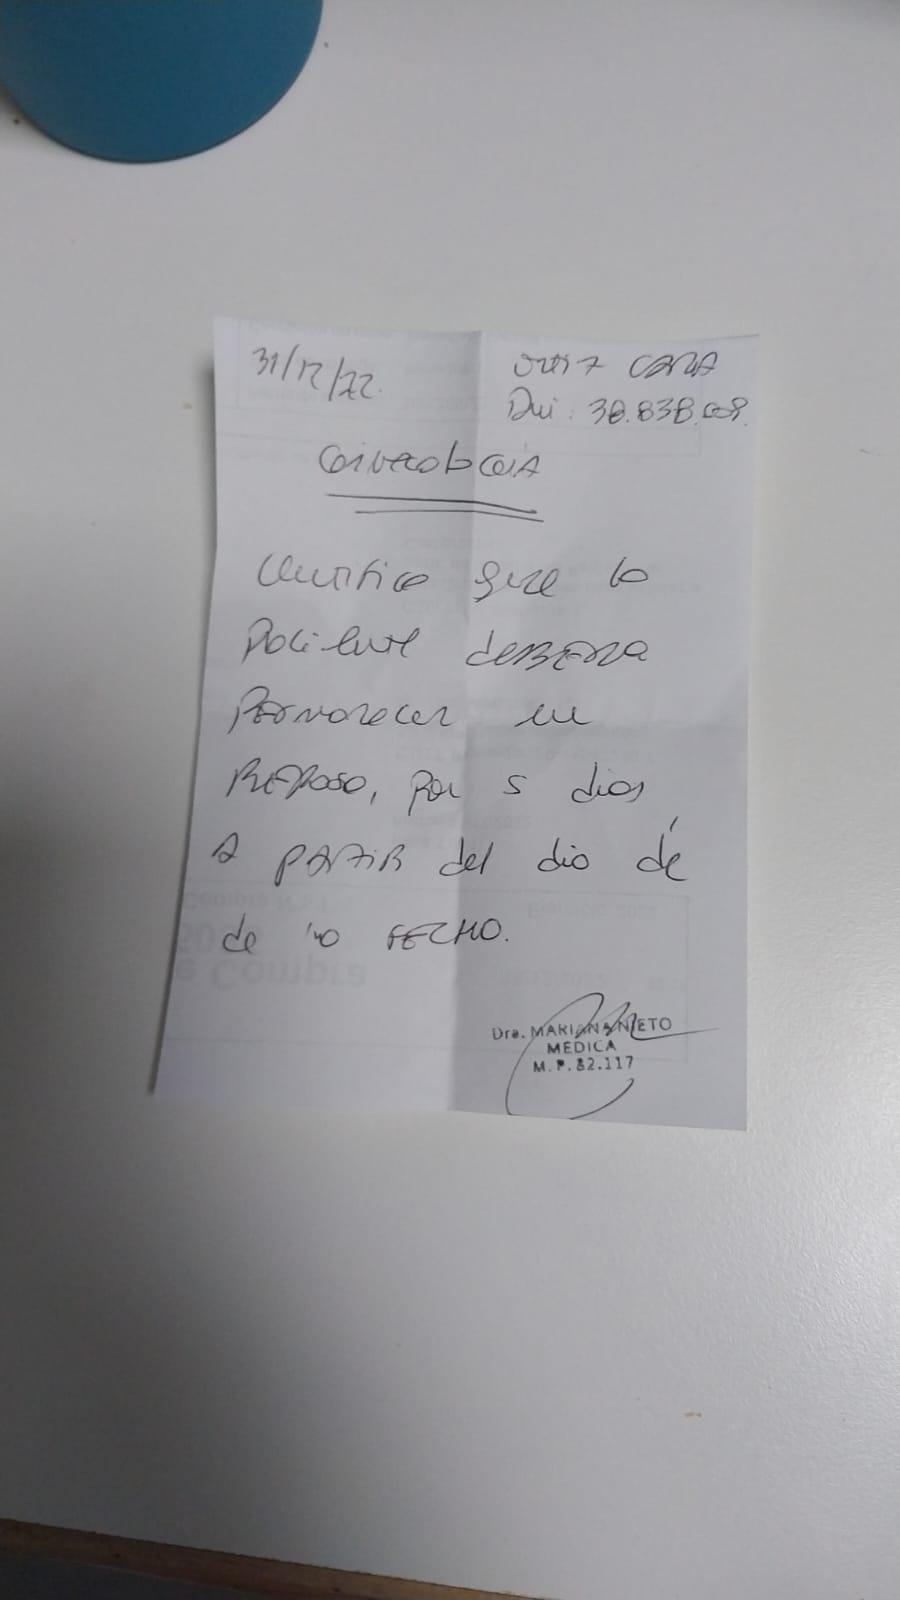 31/12/22.
Ortiz CARLA
Dni: 38.838.009.
GINECOLOGIA
Certifico que la
paciente deberá
permanecer en
REPOSO, por 5 dias
A PARTIR del dia de
de la FECHA.
Dra. MARIANA NIETO
MEDICA
M.P. 82.117